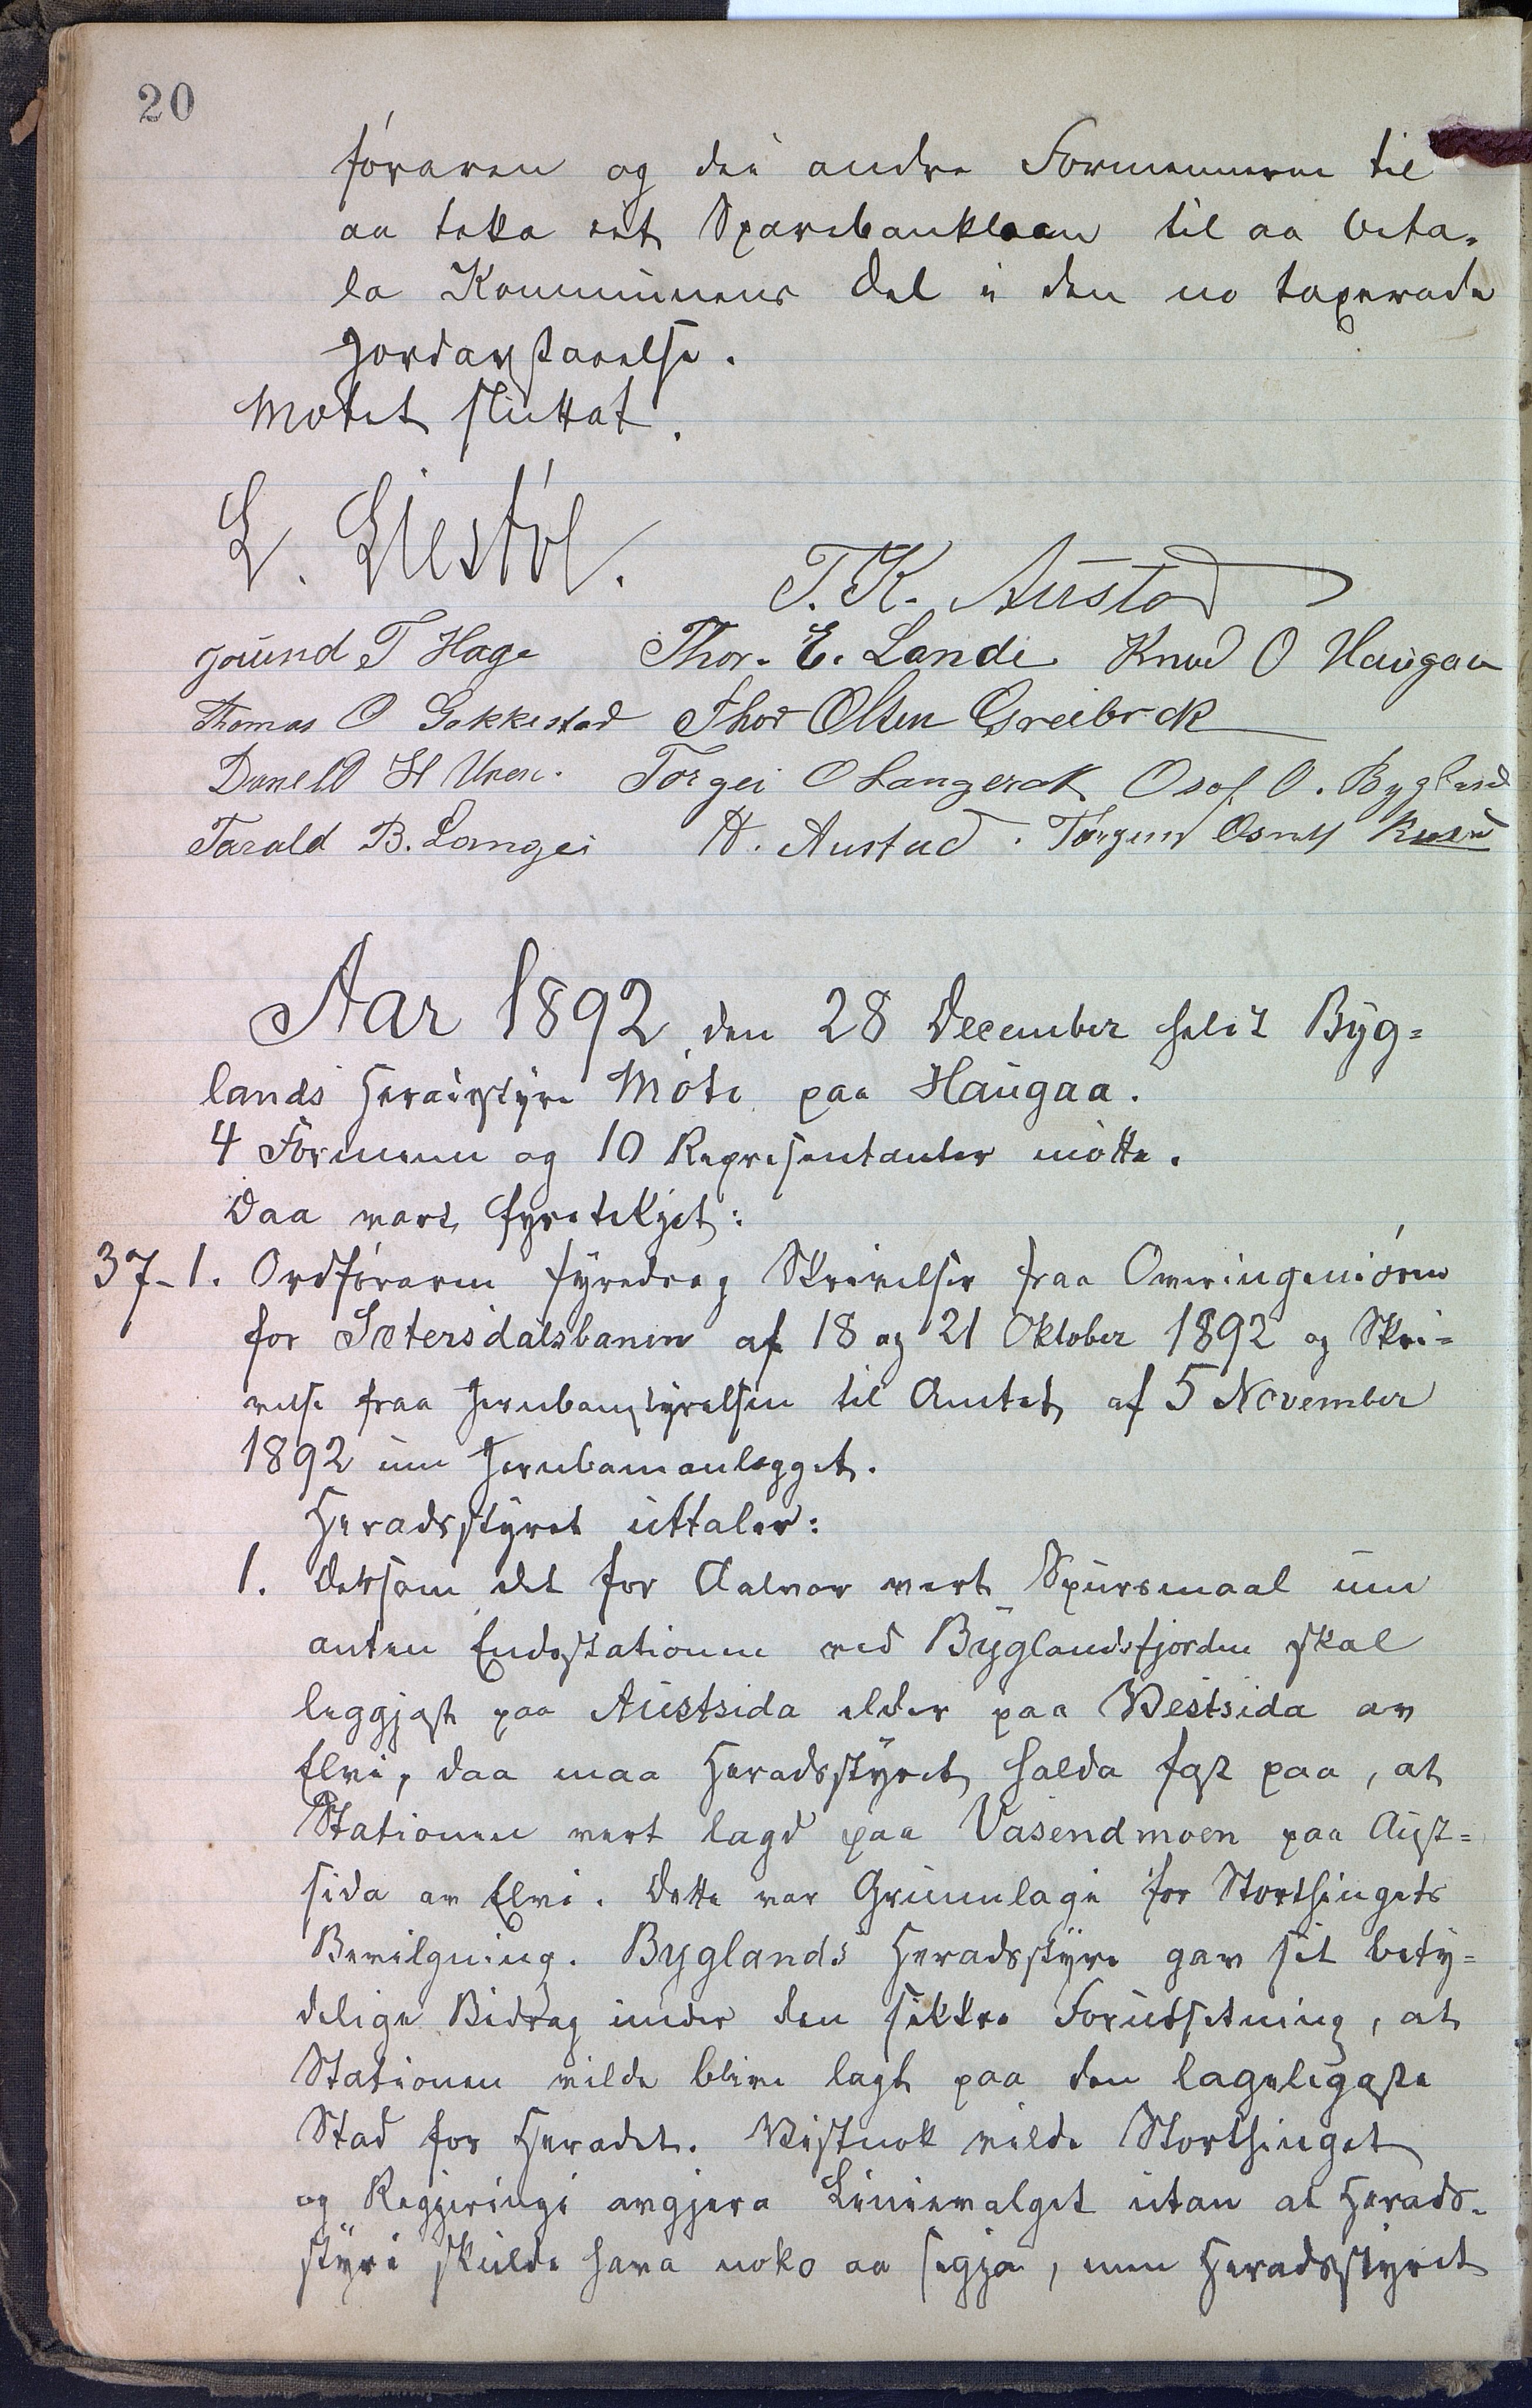 20
föraren og dei andre Formennerne til
aa taka eit Sparebanklaan til aa beta-
la Kommunens Del i den no taxerade
Jordavstaaelse.
Møtet sluttat.
L. Liestøl.
T. K. Austad
Gunund T Hage Thor. E. Lande Knud O Haugaa
Thomas O Gakkestad Thor Olsen Greibrok
Daniel H Uren. Torgei O Langerak Osof O. Bygland
Tarald B. Langei A. Austad. Torgus Osmds
Aar 1892 den 28 December helt Byg-
lands Heradsstyre Møte paa Haugaa.
4 Formenn og 10 Representanter møtte.
Daa vart fyretekjet:
37-1. Ordføraren fyredrog Skrivelser fraa Overingeniøren
for Sætersdalsbanen af 18 og 21 Oktober 1892 og Skri-
velse fraa Jernbanestyrelsen til Amtet af 5 November
1892 um Jernbaneanlegget.
Heradsstyret uttaler:
1. Dersom det for Aalvor vert Spursmaal um
anten Endestationen ved Byglandsfjorden skal
leggjast paa Austsida elder paa Vestsida av
Elvi, daa maa Heradsstyret halda fast paa, at
Stationen vert lagd paa Vasendmoen paa Aust-
sida av Elvi. Dette var Grunnlage for Stortingets
Bevilgning. Byglands Heradsstyre gav sit bety-
delige Bidrag under den sikkre Forutsetning, at
Stationen vilde blive lagt paa den lageligaste
Stad for Heradet. Vistnok vilde Stortinget
og Regjeringi avgjera Linievalget utan at Herads-
styre skulde hava noko aa segja, men Heradsstyret